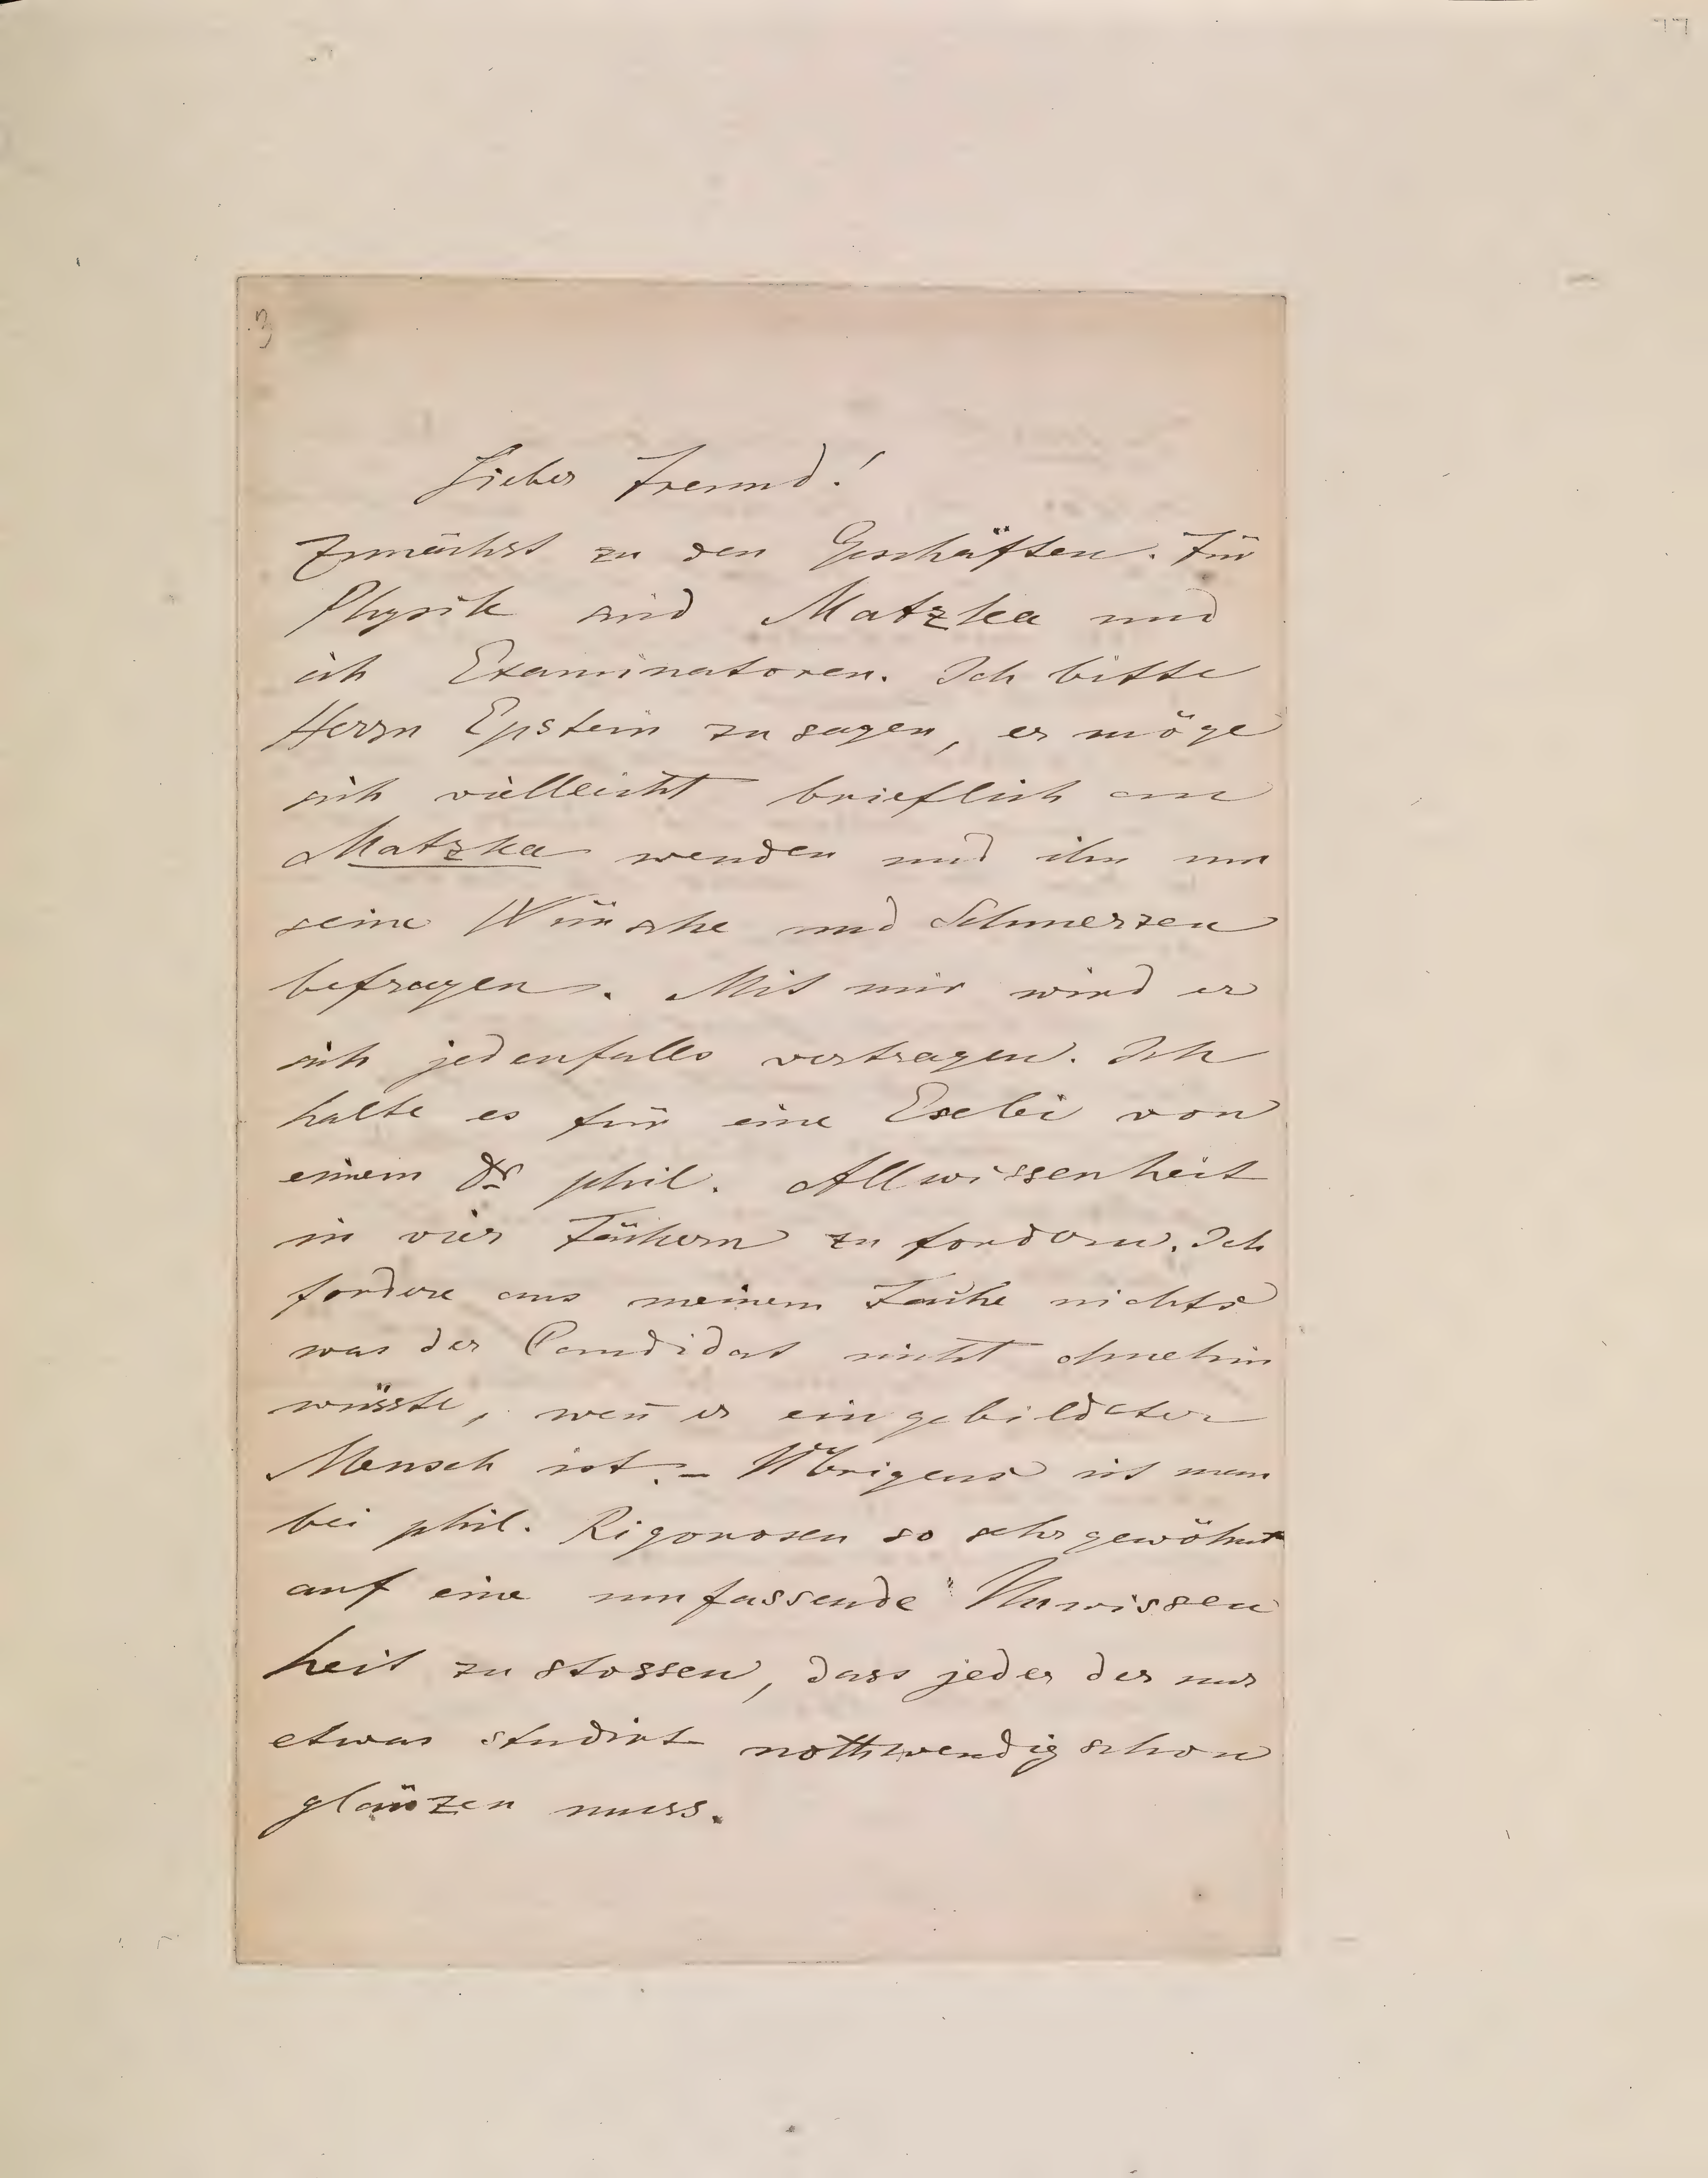 3
Lieber Freund!
Zunächst zu den Geschäften. Für
Physik sind Matzka und
ich Examinatoren. Ich bitte
Herrn Epstein zu sagen, er möge
sich vielleicht brieflich an
Matzka wenden und ihn um
seine Wünsche und Schmerzen
befragen. Mit mir wird er
sich jedenfalls vertragen. Ich
halte es für eine Eselei von
einem Dr phil. Allwissenheit
in vier Fächern zu fordern. Ich
fordere aus meinem Fache nichts
was der Candidat nicht ohnehin
wüsste, wen̄ er ein gebildeter
Mensch ist. – Übrigens ist man
bei phil. Rigorosen so sehr gewöhnt
auf eine umfassende Unwissen
heit zu stossen, dass jeder der nur
etwas studirt nothwendig schon
glänzen muss.